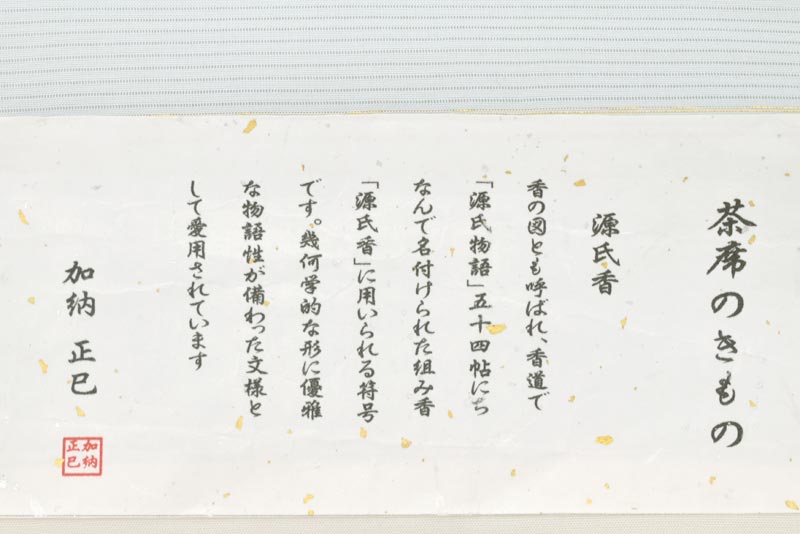 茶席のきもの
源氏香
香の図とも呼ばれ、香道で
「源氏物語」五十四帖にち
なんで名付けられた組み香
「源氏香」に用いられる符号
です。幾何学的な形に優雅
な物語性が備わった文様と
して愛用されています
加納 正巳
加納
正巳